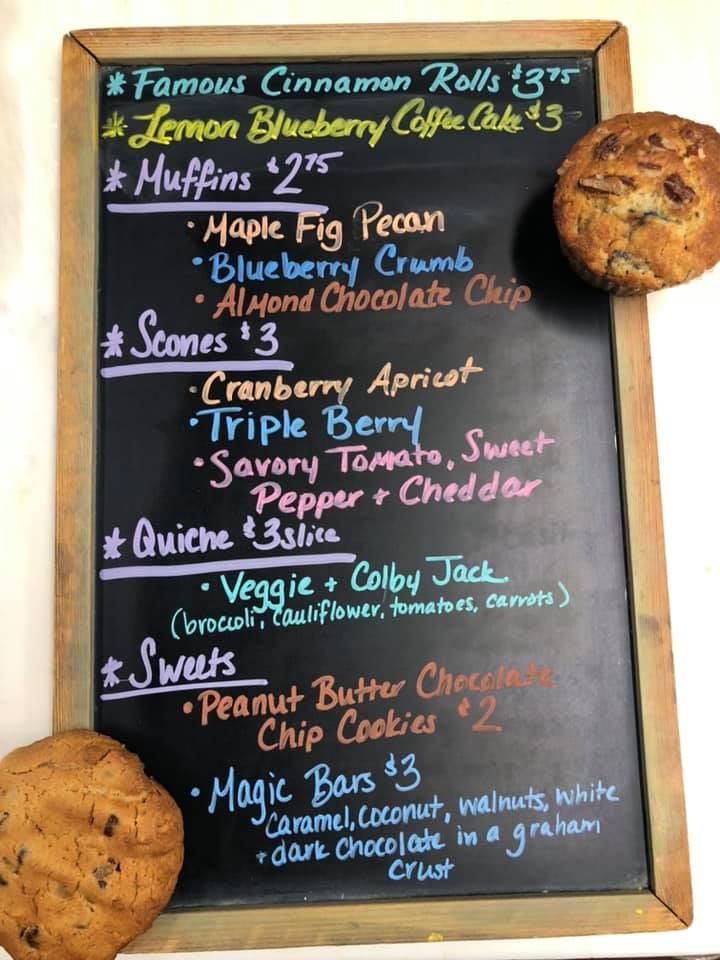 * Famous Cinnamon Rolls $3.75
* Lemon Blueberry Coffee Cake $3
* Muffins $2.75
• Maple Fig Pecan
• Blueberry Crumb
• Almond Chocolate Chip
* Scones $3
• Cranberry Apricot
• Triple Berry
• Savory Tomato, Sweet
Pepper + Cheddar
* Quiche $3 slice
• Veggie + Colby Jack
(broccoli, cauliflower, tomatoes, carrots)
* Sweets
• Peanut Butter Chocolate
Chip Cookies $2
• Magic Bars $3
Caramel, coconut, walnuts, white
+ dark chocolate in a graham
crust